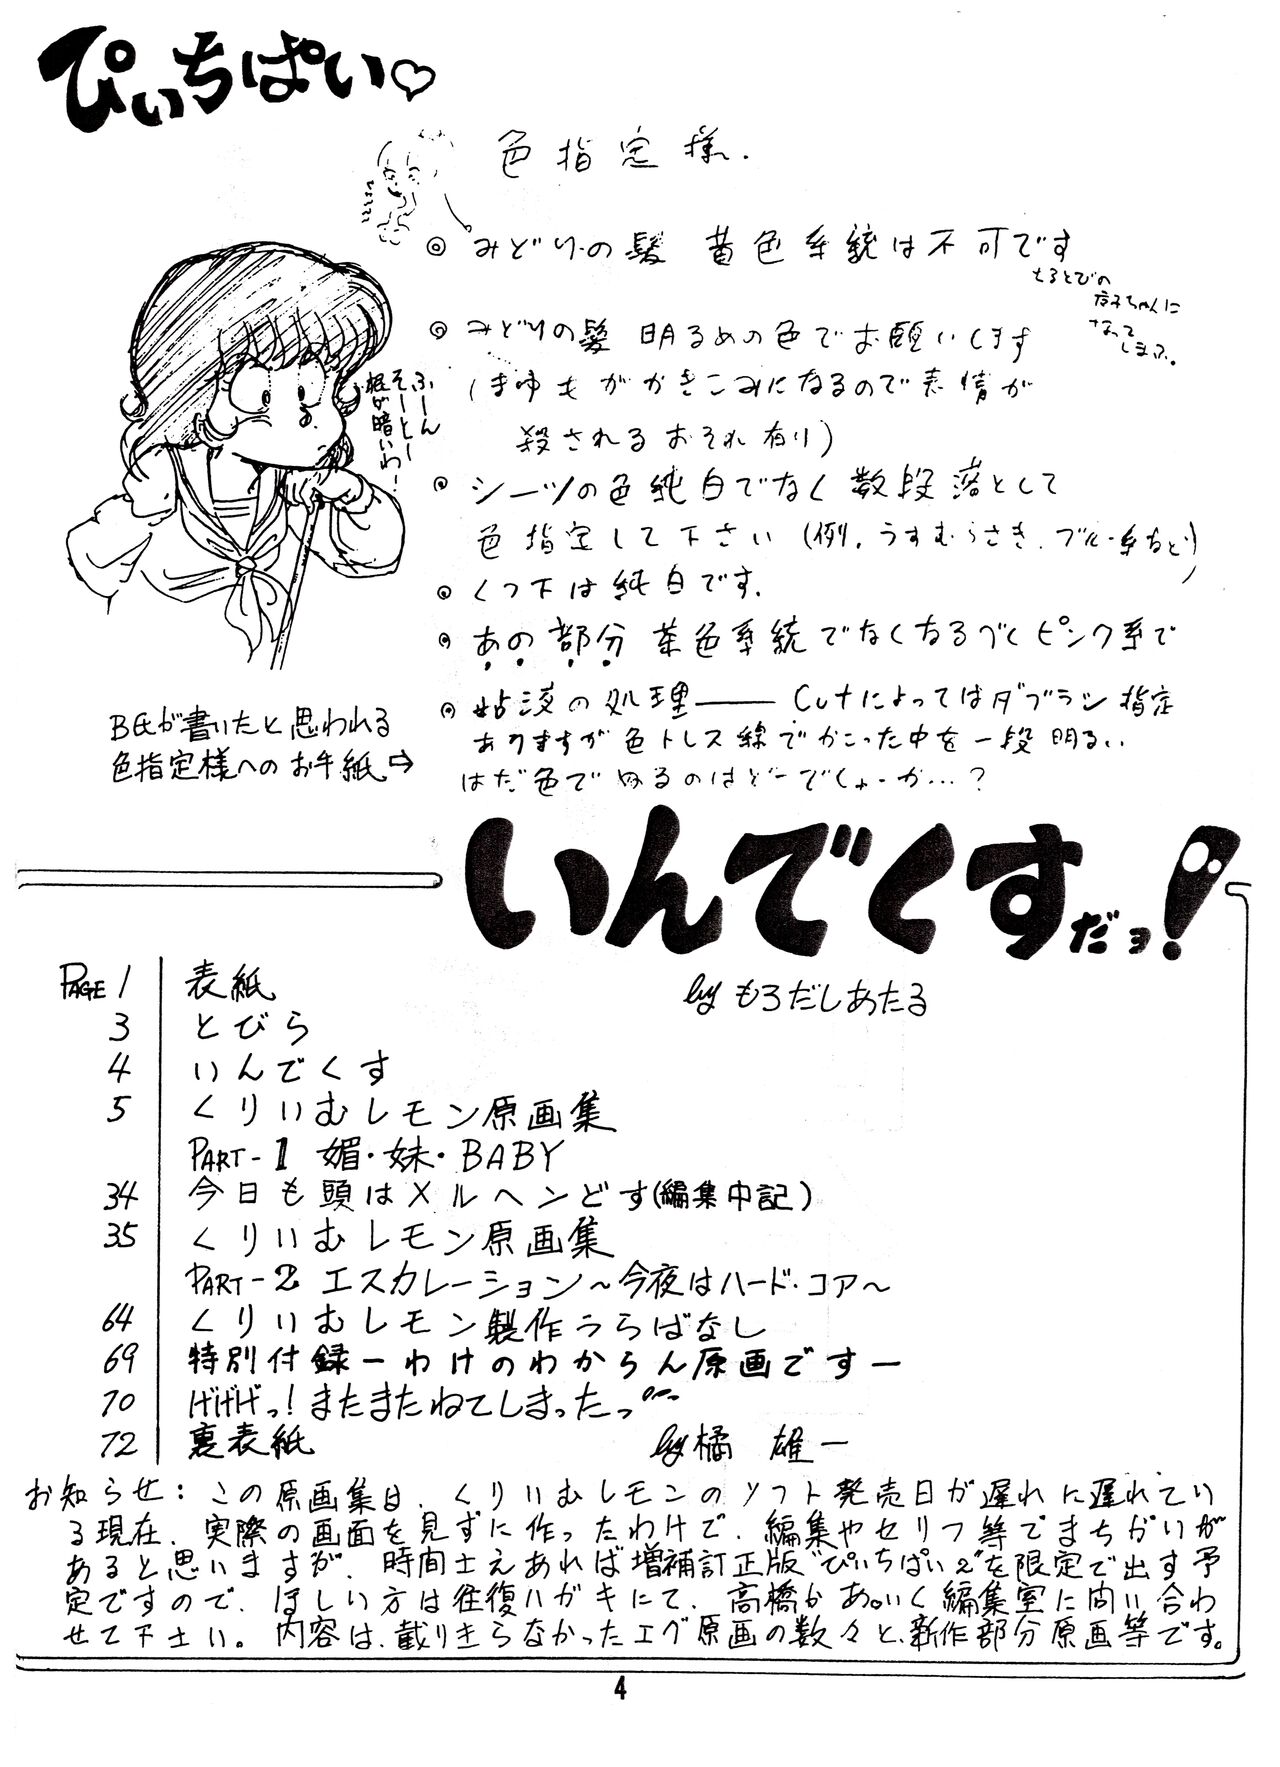 ぴいちぱい♡
色指定様.
◎ みどりの髪 黄色系統は不可です
なるとびの
京子ちゃんに
なって
しまふ。
◎ みどりの髪 明るめの色でお願いします
(まゆもがかきこみになるので表情が
殺されるおそれ有り)
◎ シーツの色純白でなく数段落として
色指定して下さい(例.うすむらさき.ブルー系など)
◎ くつ下は純白です.
◎ あの部分 茶色系統でなくなるべくピンク系で
◎ 粘液の処理――Cutによってはダブラシ指定
ありますが色トレス線でかこった中を一段明るい
はだ色でぬるのはどーでしょーか…?
ふーん
そーとー
根が暗いわ!
B氏が書いたと思われる
色指定様へのお手紙⇨
いんでくすだョ!
by もろだしあたる
PAGE 1 表紙
3 とびら
4 いんでくす
5 くりいむレモン原画集
PART-1 媚・妹・BABY
34 今日も頭はメルヘンどす(編集中記)
35 くりいむレモン原画集
PART-2 エスカレーション〜今夜はハード・コア〜
64 くりいむレモン製作うらばなし
69 特別付録ーわけのわからん原画ですー
70 げげげっ!またまたねてしまったっ
72 裏表紙
by 橘 雄一
お知らせ:この原画集は、くりいむレモンのソフト発売日が遅れに遅れてい
る現在、実際の画面を見ずに作ったわけで、編集やセリフ等でまちがいが
あると思いますが、時間さえあれば増補訂正版"ぴいちぱい2"を限定で出す予
定ですので、ほしい方は往復ハガキにて、高橋かあいく編集室に問い合わ
せて下さい。内容は、載りきらなかったエグ原画の数々と、新作部分原画等です。
4